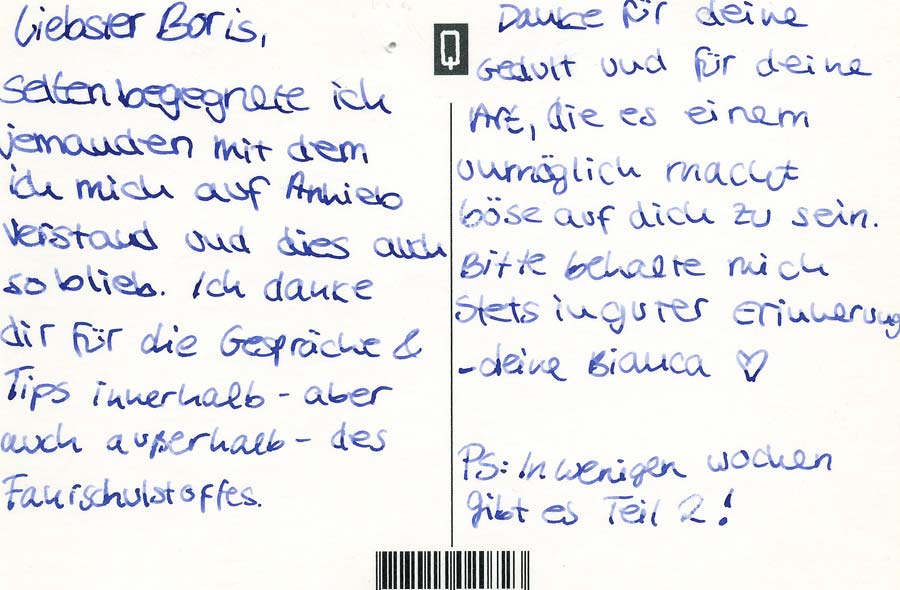 Liebster Boris,
Selten begegnete ich
jemanden mit dem
ich mich auf Anhieb
verstand und dies auch
so blieb. Ich danke
dir für die Gespräche &
Tips innerhalb - aber
auch außerhalb - des
Fahrschulstoffes.
Danke für deine
Gedult und für deine
Art, die es einem
unmöglich macht
böse auf dich zu sein.
Bitte behalte mich
stets in guter Erinnerung
- deine Bianca ♡
PS: In wenigen wochen
gibt es Teil 2!